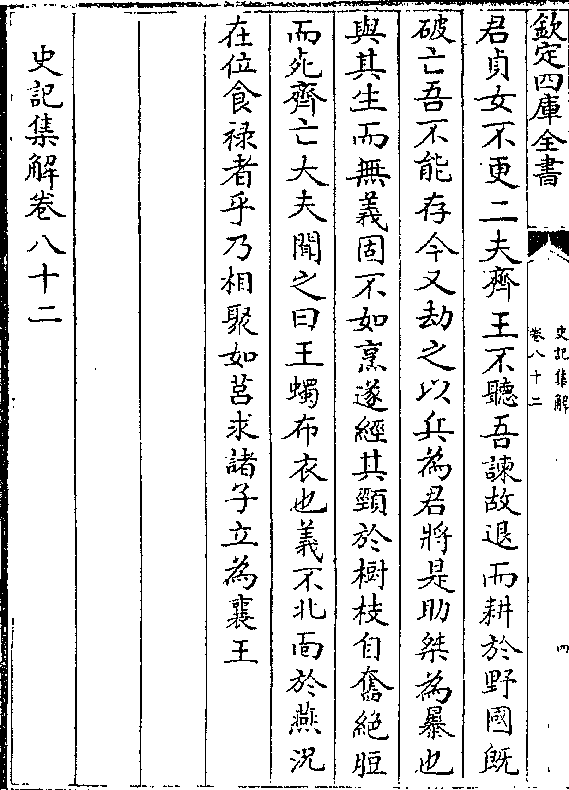 欽定四庫全書
史記集解
卷八十二
四
君貞女不更二夫齊王不聽吾諫故退而耕於野國既
破亡吾不能存今又劫之以兵為君將是助桀為暴也
與其生而無義固不如烹遂經其頸於樹枝自奮絶脰
而死齊亡大夫聞之曰王蠋布衣也義不北面於燕况
在位食禄者乎乃相聚如莒求諸子立為襄王
史記集解卷八十二